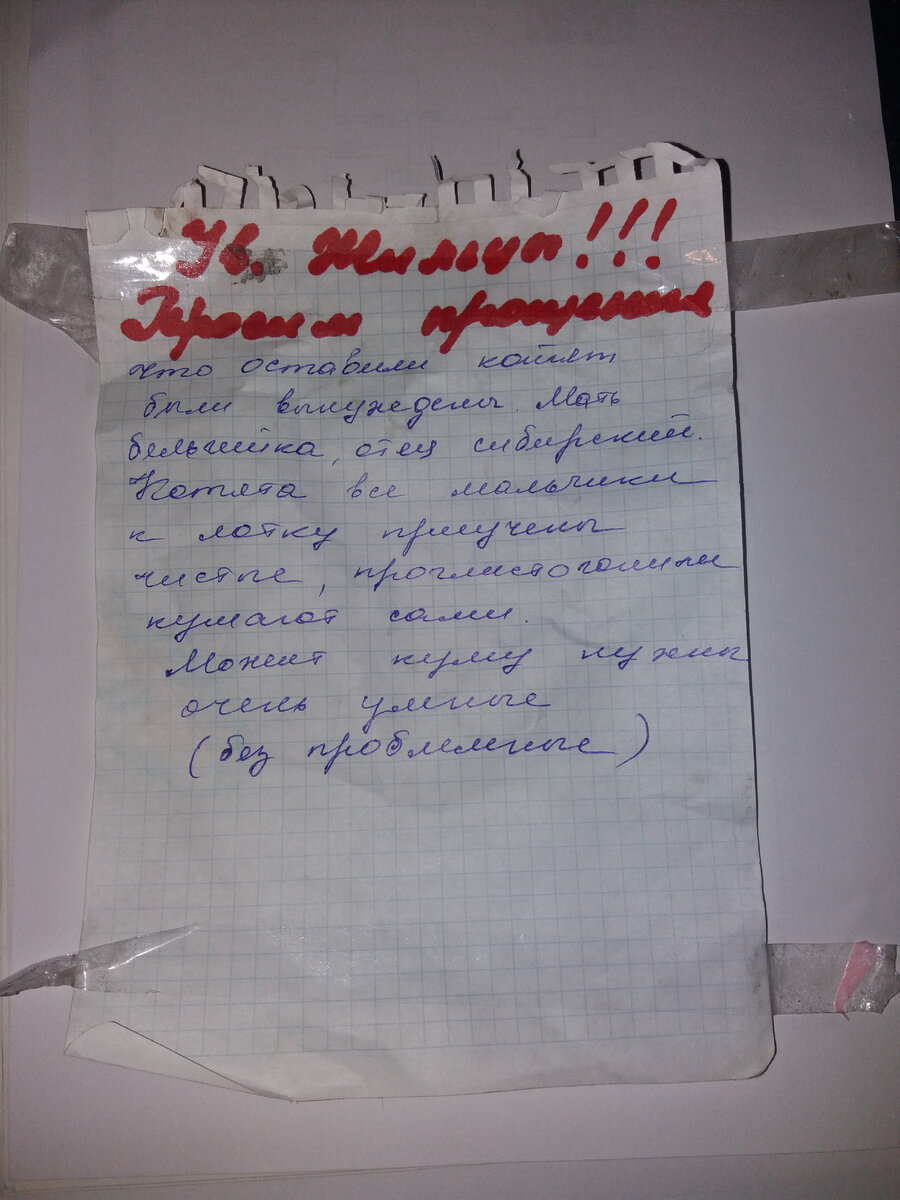 Ув. Жильцы!!!
Просим прощения
что оставили котят
были вынуждены. Мать
бельгийка, отец сибирский.
Котята все мальчики
к лотку приучены
чистые, проглистогонили
кушают сами.
Может кому нужны
очень умные
(без проблемные)